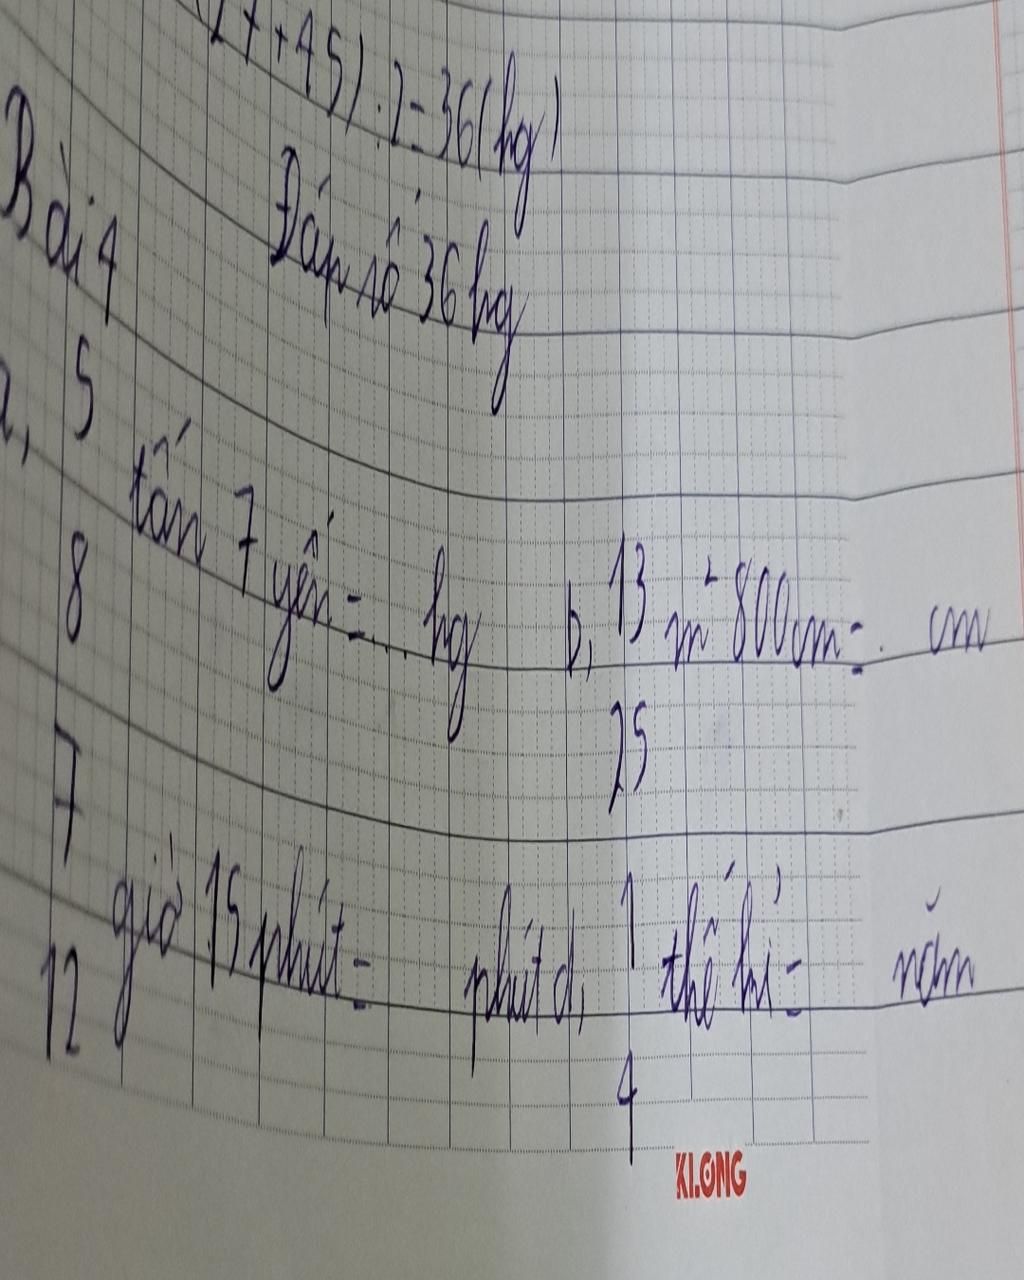 27+45):2=36(kg)
Đáp số 36kg
Bài 4
a, 5/8 tấn 7 yến=... kg b, 13/25 m² 800cm=. cm
7/12 giờ 15phút= phút d, 1/4 thế kỉ= năm
KLONG